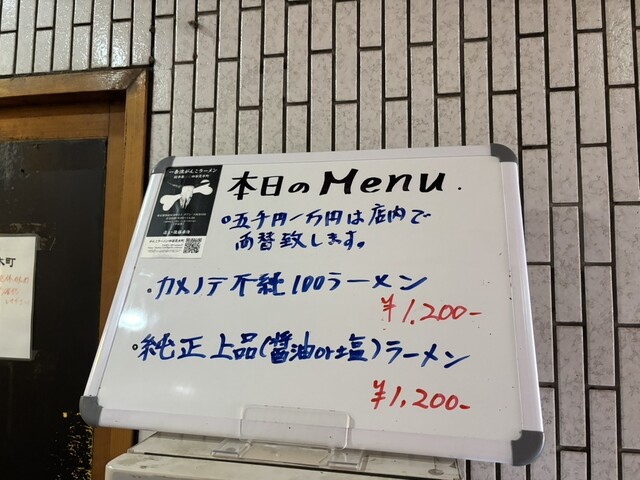 一条流がんこラーメン
本日のMenu.
。五千円/万円は店内で
両替致します。
・カメノテ不純100ラーメン
¥1,200-
。純正上品(醤油or塩)ラーメン
¥1,200-